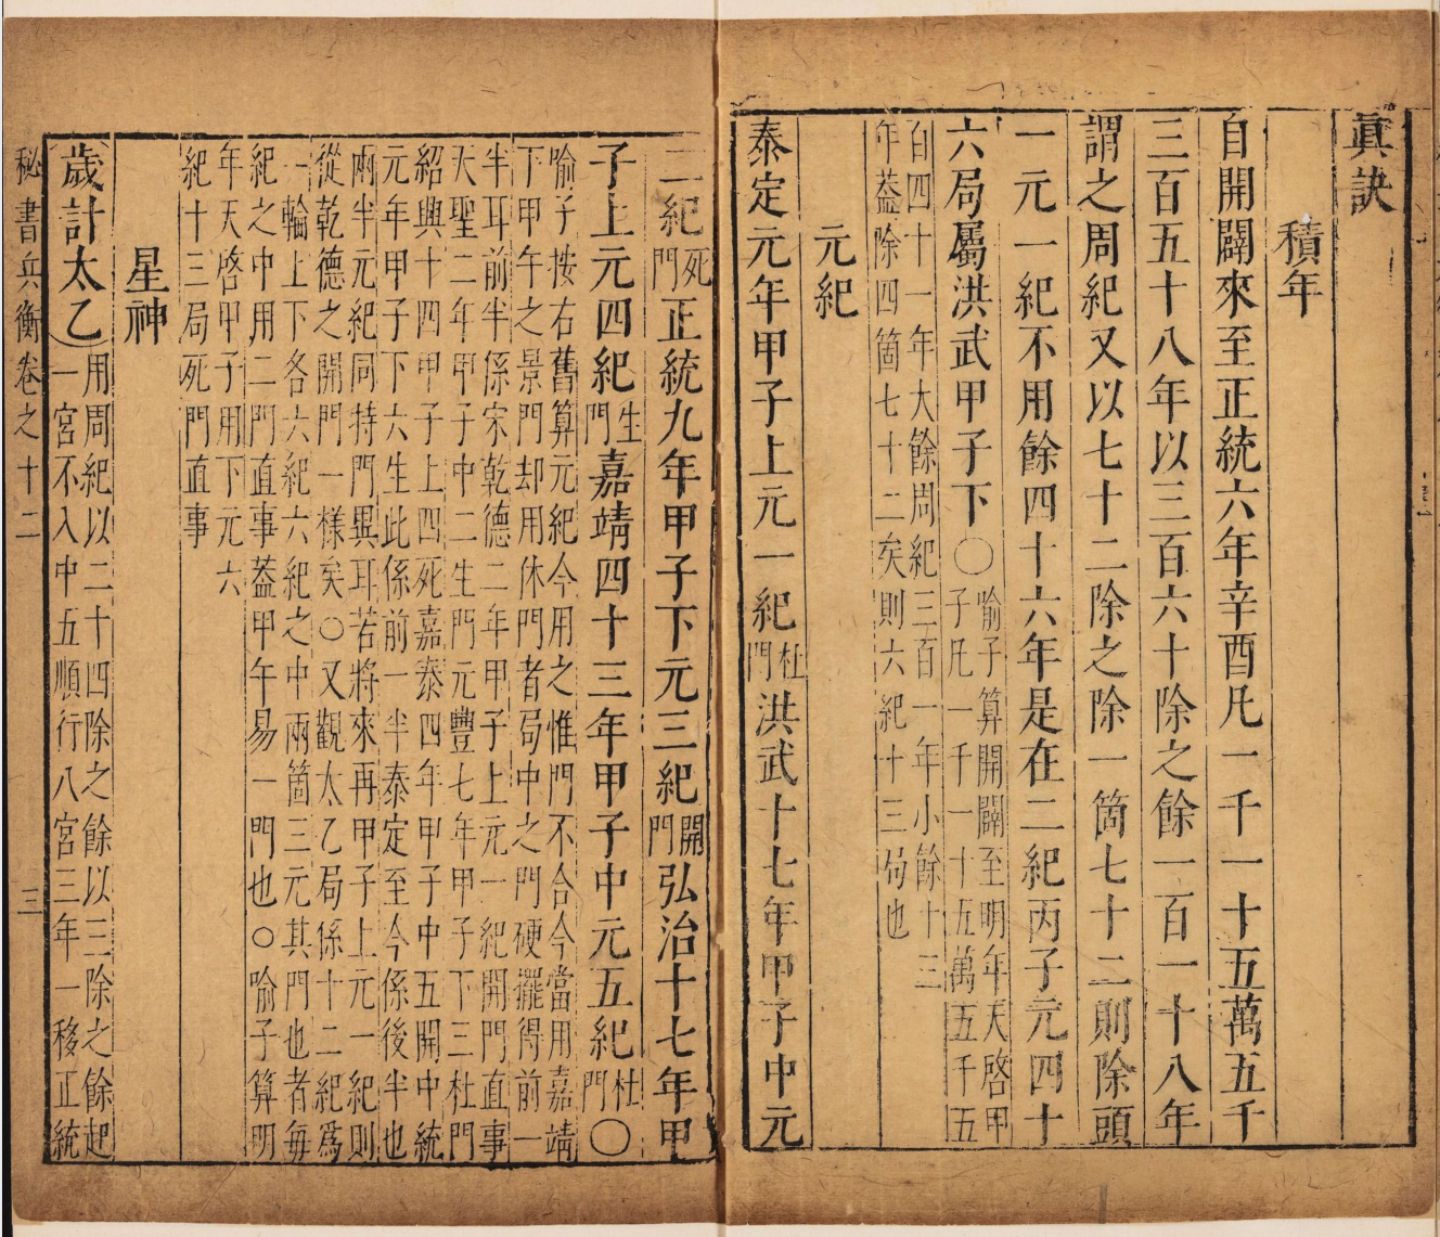 眞訣
積年
自開闢來至正統六年辛酉凡一千一十五萬五千
三百五十八年以三百六十除之餘一百一十八年
謂之周紀又以七十二除之除一箇七十二則除頭
一元一紀不用餘四十六年是在二紀丙子元四十
六局屬洪武甲子下〇喻子算開闢至明年天啓甲
子凡一千一十五萬五千五
百四十一年大餘周紀三百一年小餘十三
年葢除四箇七十二矣則六紀十三局也
元紀
泰定元年甲子上元一紀杜門洪武十七年甲子中元
二紀死門正統九年甲子下元三紀開門弘治十七年甲
子上元四紀生門嘉靖四十三年甲子中元五紀杜門〇
喻子按右舊算元紀今用之惟門不合今當用嘉靖
下甲午之景門却用休門者局中之門硬擺得前一
半耳前半係宋乾德二年甲子上元一紀開門直事
天聖二年甲子中二生門元豐七年甲子下三杜門
紹興十四甲子上四死嘉泰四年甲子中五開中統
元年甲子下六生此係前一半泰定至今係後半也
兩半元紀同特門異耳若將來再甲子上元一紀則
從乾德之開門一樣矣〇又觀太乙局係十二紀爲
一輪上下各六紀六紀之中兩箇三元其門也者每
紀之中用二門直事葢甲午易一門也〇喻子算明
年天啓甲子用下元六
紀十三局死門直事
星神
歲計太乙用周紀以二十四除之餘以三除之餘起
一宮不入中五順行八宮三年一移正統
秘書兵衡卷之十二 三